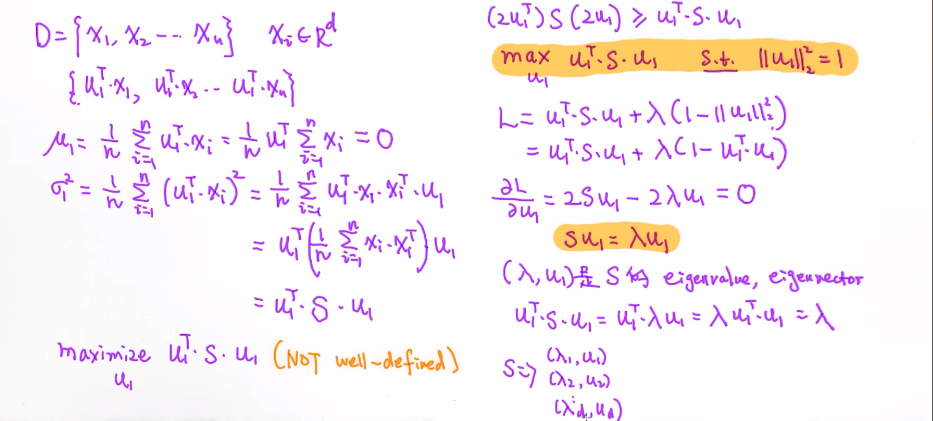 D = {x₁, x₂ --- xₙ}   xᵢ ∈ ℝᵈ
{u₁ᵀ·x₁, u₁ᵀ·x₂ --- u₁ᵀ·xₙ}
μ₁ = 1/n Σᵢ₌₁ⁿ u₁ᵀ·xᵢ = 1/n u₁ᵀ Σᵢ₌₁ⁿ xᵢ = 0
σ₁² = 1/n Σᵢ₌₁ⁿ (u₁ᵀ·xᵢ)² = 1/n Σᵢ₌₁ⁿ u₁ᵀ·xᵢ·xᵢᵀ·u₁
= u₁ᵀ (1/n Σᵢ₌₁ⁿ xᵢ·xᵢᵀ) u₁
= u₁ᵀ·S·u₁
maximize u₁ᵀ·S·u₁ (NOT well-defined)
u₁
(2u₁ᵀ) S (2u₁) ≥ u₁ᵀ·S·u₁
max u₁ᵀ·S·u₁   s.t. ||u₁||₂² = 1
u₁
L = u₁ᵀ·S·u₁ + λ(1-||u₁||₂²)
= u₁ᵀ·S·u₁ + λ(1-u₁ᵀ·u₁)
∂L/∂u₁ = 2Su₁ - 2λu₁ = 0
Su₁ = λu₁
(λ,u₁)是 S 的 eigenvalue, eigenvector
u₁ᵀ·S·u₁ = u₁ᵀ·λu₁ = λu₁ᵀ·u₁ = λ
S => (λ₁,u₁)
(λ₂,u₂)
(λd,ud)